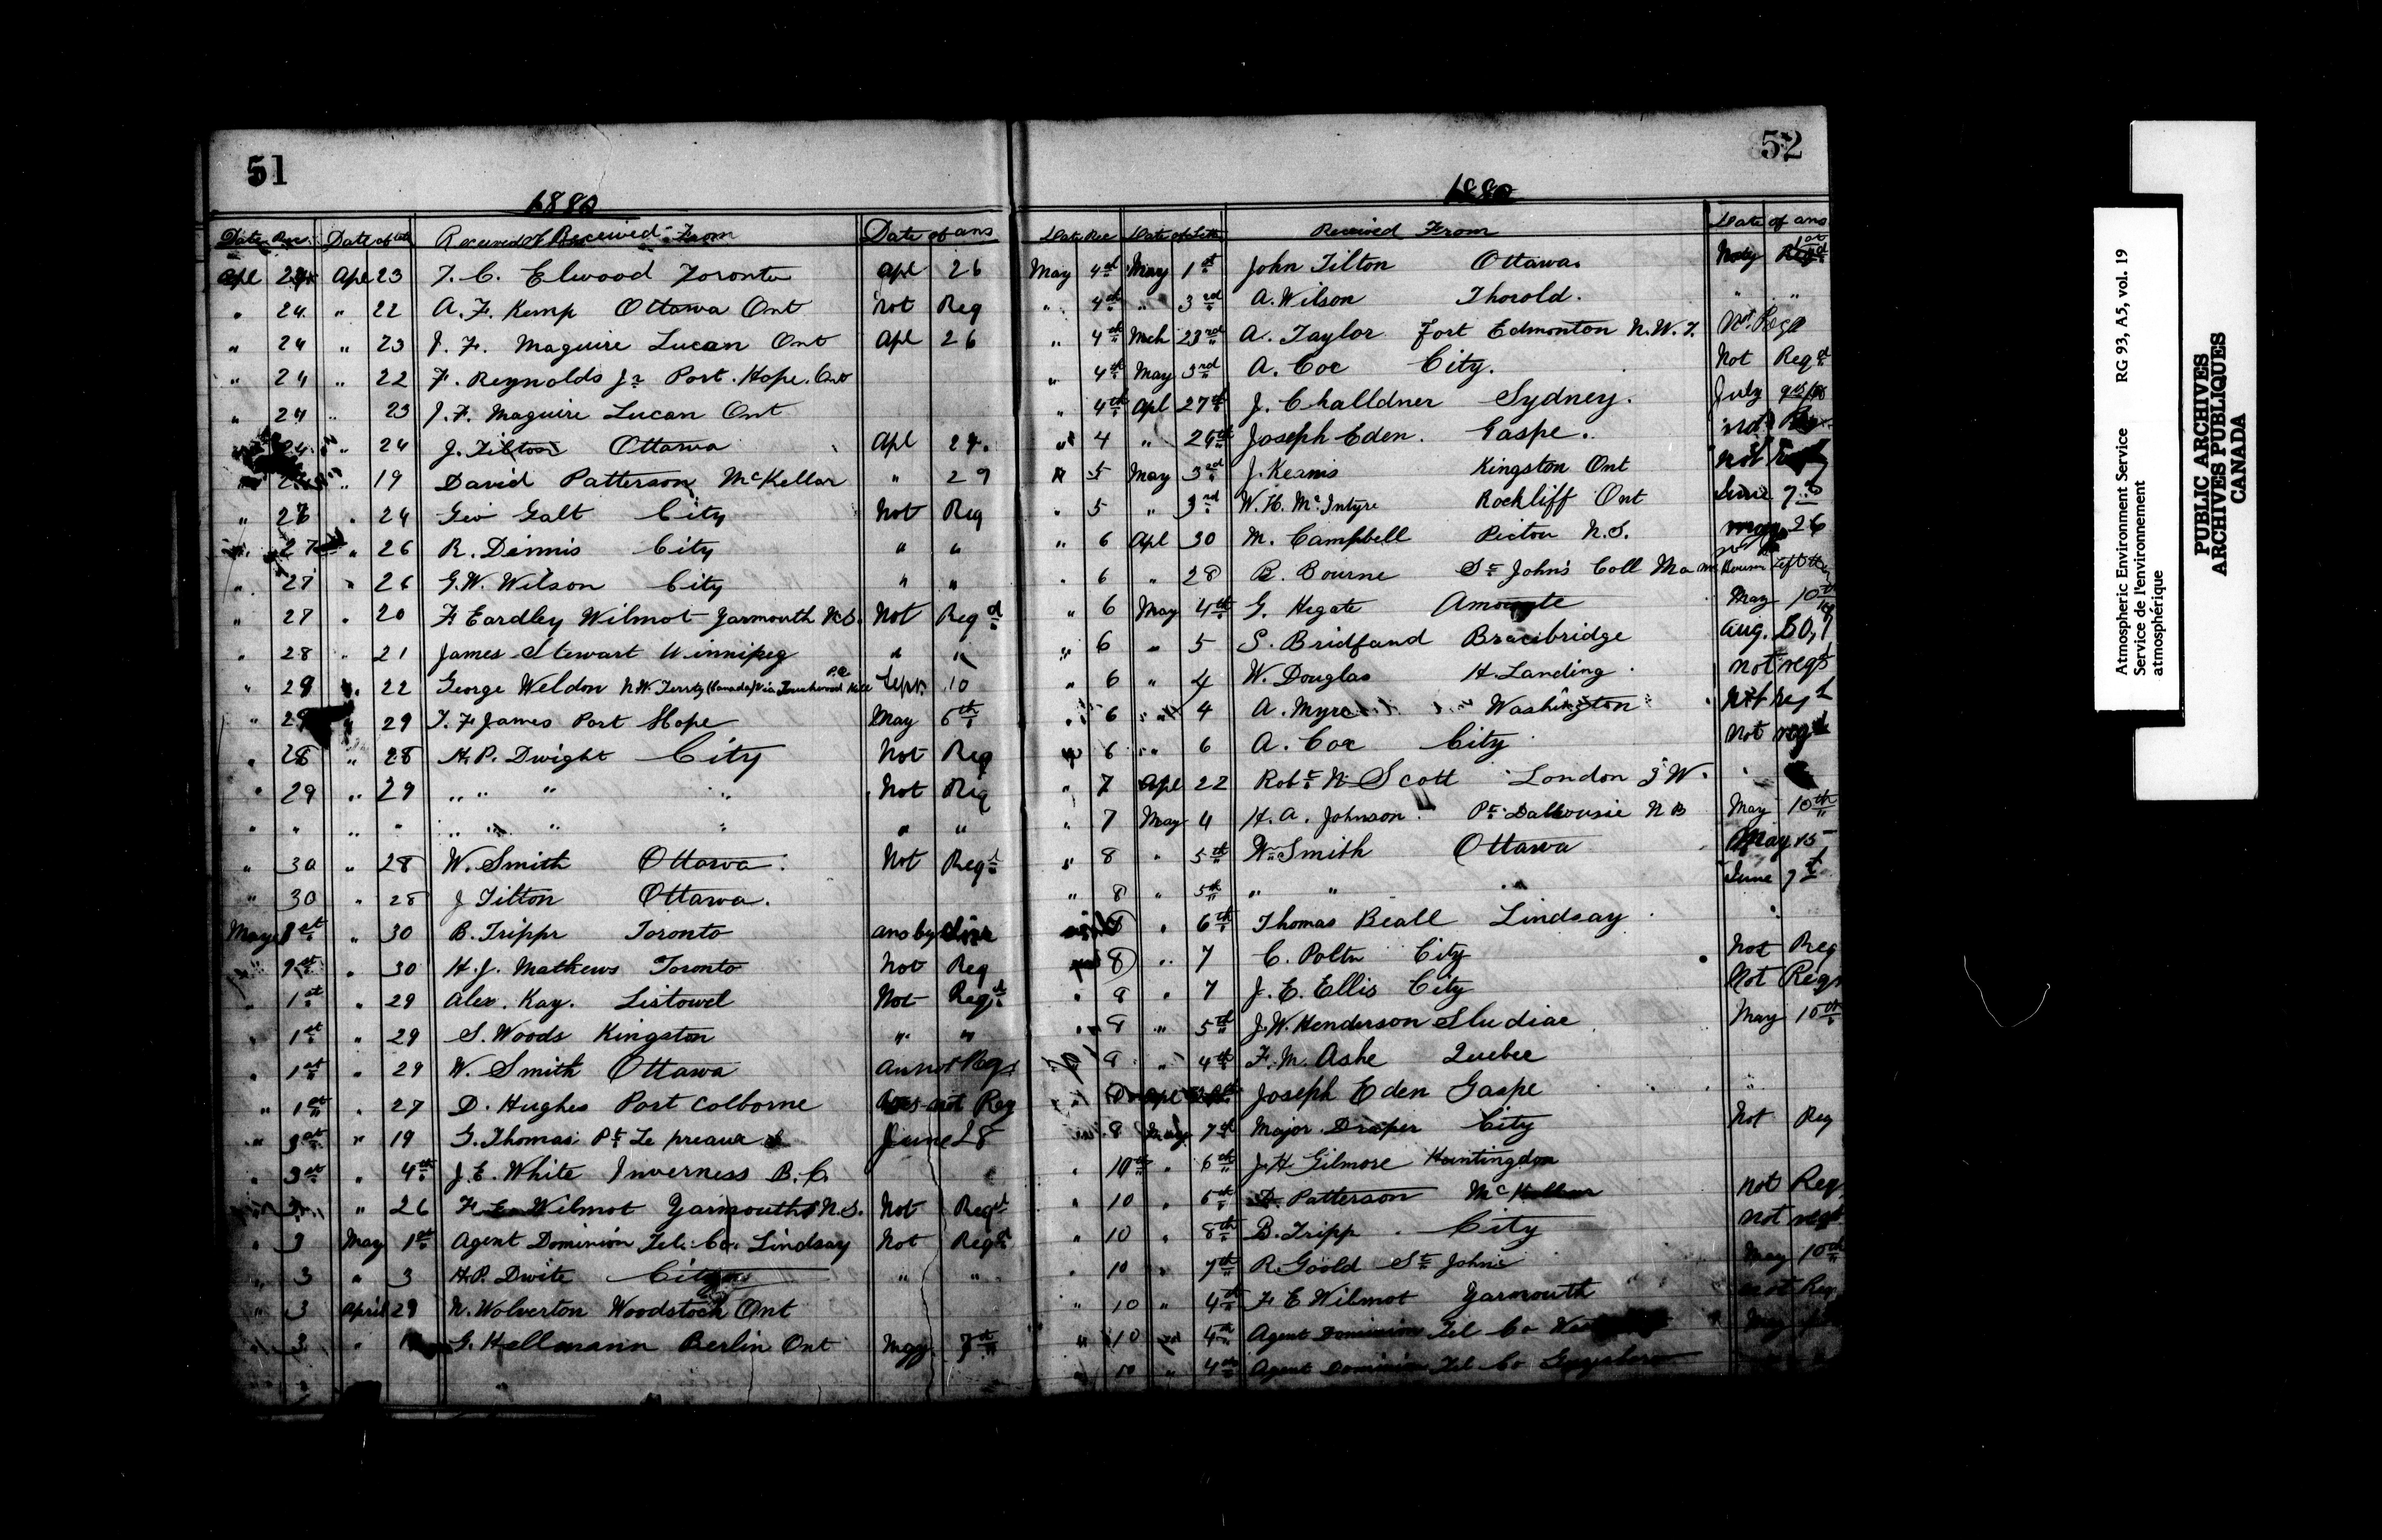 51
1880
Date Rec. Date of Let Received From Date of ans
Apl 24 Apl 23 T. C. Elwood Toronto Apl 26
" 24 " 22 A. F. Kemp Ottawa Ont Not Req
" 24 " 23 J. F. Maguire Lucan Ont Apl 26
" 24 " 22 F. Reynolds Jr Port Hope. Ont
" 24 " 23 J. F. Maguire Lucan Ont
24 " 24 J. Tilton Ottawa Apl 27.
" 19 David Patterson McKellar " 29
" 26 " 24 Geo Galt City Not Req
" 27 " 26 R. Dennis City " "
" 27 " 26 G. W. Wilson City " "
" 27 " 20 F. Eardley Wilmot Yarmouth N.S. Not Reqd
" 28 " 21 James Stewart Winnipeg " "
" 29 " 22 George Weldon N.W. Territy (Canada) Via Touchwood Hill P.O. Sept. 10
" 29 " 29 T. F. James Port Hope May 5th
" 28 " 28 H. P. Dwight City Not Req
" 29 " 29 " " " " Not Req
" " " " " " " " " "
" 30 " 28 W. Smith Ottawa. Not Reqd
" 30 " 28 J Tilton Ottawa.
May 1st " 30 B. Tripps Toronto ans by
" 1st " 30 H. J. Mathews Toronto Not Req
" 1st " 29 Alex. Kay. Listowel Not Reqd
" 1st " 29 S. Woods Kingston " "
" 1st " 29 W. Smith Ottawa Reqd
" 1st " 27 D. Hughes Port Colborne not Req
" 3rd " 19 G. Thomas Pt Le preaux June 28
" 3rd " 4th J. E. White Inverness B. C.
" 3 " 26 F. E. Wilmot Yarmouth N.S. Not Reqd
" 3 May 1st Agent Dominion Tel. Co. Lindsay Not Reqd
" 3 " 3 H. P. Dwite City " "
" 3 April 29 N. Wolverton Woodstock Ont
" 3 " G. Hellmann Berlin Ont May 7th
52
1880
Date Rec Date of Lett Received From Date of ans
May 4th May 1st John Tilton Ottawa.
" 4th " 3rd A. Wilson Thorold. " "
" 4th Mch 23rd A. Taylor Fort Edmonton N.W.T. Not Reqd
" 4th May 3rd A. Cox City. Not Reqd
" 4th Apl 27th J. Challdner Sydney. July
" 4 " 26th Joseph Eden. Gaspe. not
" 5 May 3rd J. Keanis Kingston Ont not
" 5 " 3rd W. H. McIntyre Rockliff Ont June 7th
" 6 Apl 30 M. Campbell Pictou N.S. May 26
" 6 " 28 B. Bourne St John's Coll Ma
" 6 May 4th G. Hegate May 10th
" 6 " 5 S. Bridfand Bracebridge Aug.
" 6 " 4 W. Douglas H. Landing not reqd
" 6 " 4 A. Myre Washington not reqd
" 6 " 6 A. Cox City not reqd
" 7 Apl 22 Robt N Scott London S W.
" 7 May 4 H. A. Johnson. Pt Dalhousie N B May 10th
" 8 " 5th Wm Smith Ottawa May 15
" 8 " 5th " " " June 7th
8 " 6th Thomas Beall Lindsay
8 " 7 C. Poltn City Not Req
" 8 " 7 J. E. Ellis City Not Reqd
" 8 " 5th J. W. Henderson Shediac May 10th
" 9 " 4th F. M. Ashe Quebec
Apl Joseph Eden Gaspe
8 May 7th Major Draper City Not Req
" 10th " 6th J. H. Gilmore Huntingdon
" 10 " 6th D. Patterson not Req
" 10 " 8th B. Tripp City not reqd
" 10 " 7th R. Goold St Johns May 10th
" 10 " 4th F E Wilmot Yarmouth not Req
" 10 " 4th Agent Dominion Tel Co
" 10 " 4th Agent Dominion Tel Co
Atmospheric Environment Service RG 93, A5, vol. 19
Service de l'environnement
atmosphérique
PUBLIC ARCHIVES
ARCHIVES PUBLIQUES
CANADA